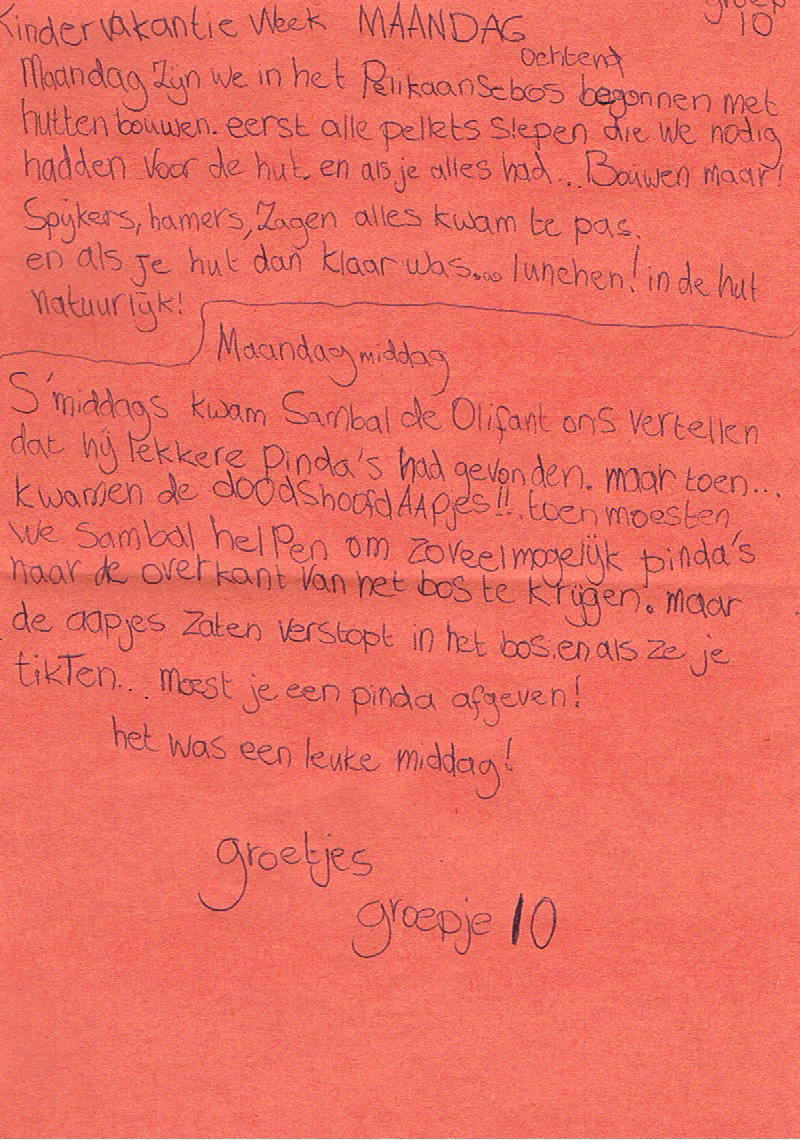 Kindervakantie Week MAANDAG groep 10
ochtend
Maandag Zijn we in het Pelikaansebos begonnen met
hutten bouwen. eerst alle pellets slepen die we nodig
hadden voor de hut. en als je alles had... Bouwen maar!
Spijkers, hamers, Zagen alles kwam te pas.
en als je hut dan klaar was.... lunchen! in de hut
natuurlijk!
Maandagmiddag
S'middags kwam Sambal de Olifant ons vertellen
dat hij lekkere pinda's had gevonden. maar toen...
kwamen de doodshoofdAApjes!!. toen moesten
we Sambal helpen om zoveel mogelijk pinda's
naar de overkant van het bos te krijgen. maar
de aapjes zaten verstopt in het bos. en als ze je
tikTen... moest je een pinda afgeven!
het was een leuke middag!
groetjes
groepje 10